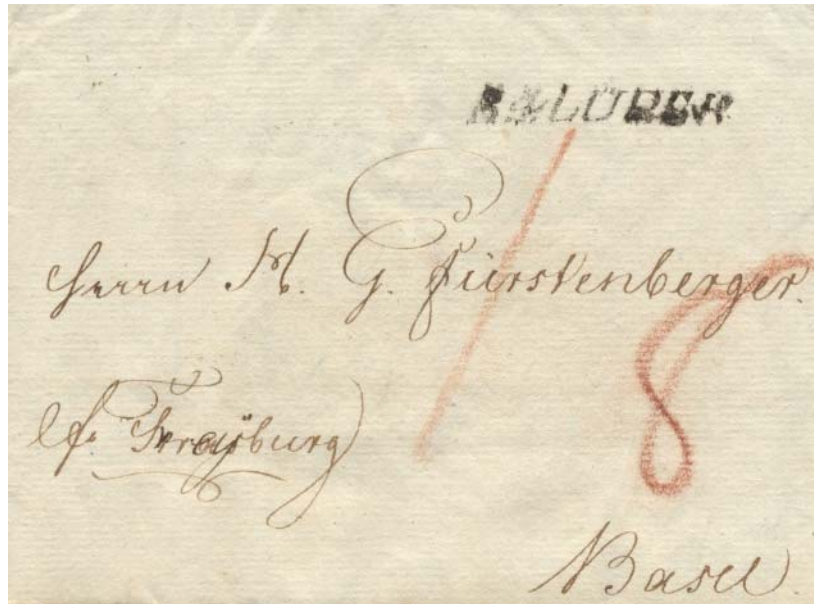 R.4.LÜBEK
Herrn H. G. Fürstenberger.
8
Straßburg
Basel.